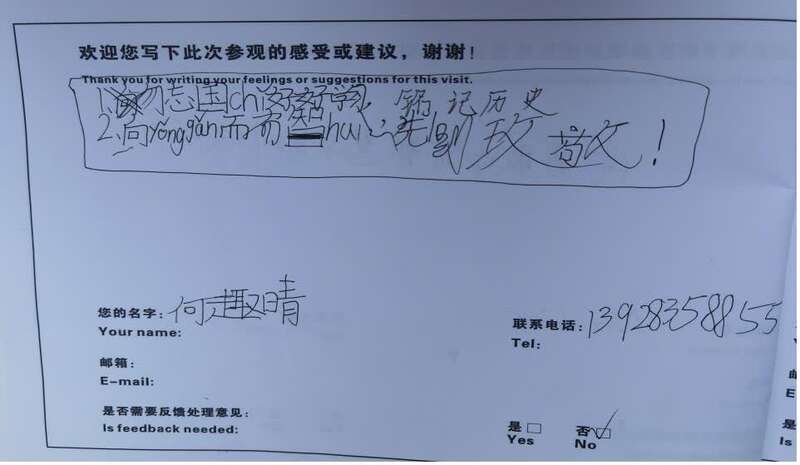 欢迎您写下此次参观的感受或建议，谢谢！
Thank you for writing your feelings or suggestions for this visit.
1. 勿志国chǐ 好好学习，铭记历史
2. 向yǒnggǎn而有智huì 先剅致敬！
您的名字：何趣晴
Your name:
联系电话：13928358855
Tel:
邮箱：
E-mail:
是否需要反馈处理意见：
Is feedback needed:
是 □ 否 ☑
Yes No